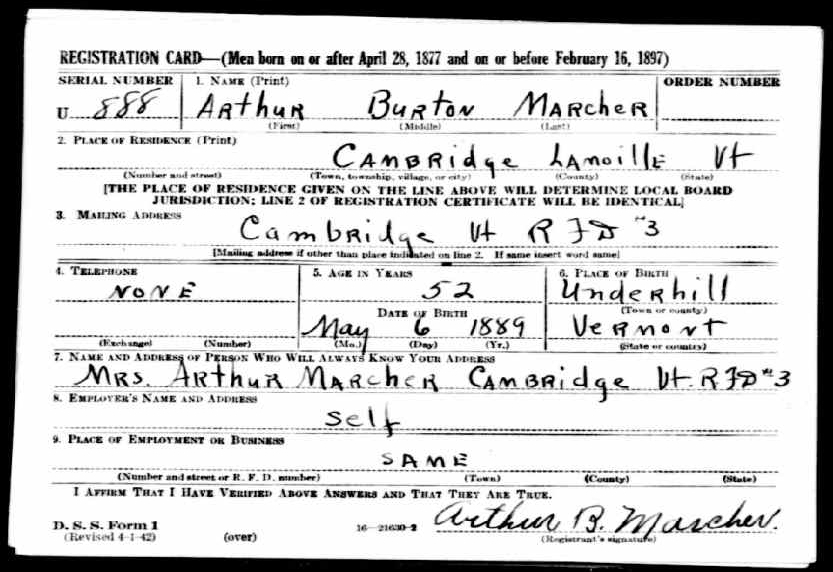 REGISTRATION CARD—(Men born on or after April 28, 1877 and on or before February 16, 1897)
SERIAL NUMBER 1. NAME (Print) ORDER NUMBER
U 888 ARTHUR BURTON MARCHER
(First) (Middle) (Last)
2. PLACE OF RESIDENCE (Print)
CAMBRIDGE LAMOILLE Vt
(Number and street) (Town, township, village, or city) (County) (State)
[THE PLACE OF RESIDENCE GIVEN ON THE LINE ABOVE WILL DETERMINE LOCAL BOARD
JURISDICTION; LINE 2 OF REGISTRATION CERTIFICATE WILL BE IDENTICAL]
3. MAILING ADDRESS
Cambridge Vt R F D #3
[Mailing address if other than place indicated on line 2. If same insert word same]
4. TELEPHONE 5. AGE IN YEARS 6. PLACE OF BIRTH
NONE 52 Underhill
(Town or county)
DATE OF BIRTH
May 6 1889 Vermont
(Exchange) (Number) (Mo.) (Day) (Yr.) (State or country)
7. NAME AND ADDRESS OF PERSON WHO WILL ALWAYS KNOW YOUR ADDRESS
MRS. ARTHUR MARCHER CAMBRIDGE Vt. R F D #3
8. EMPLOYER'S NAME AND ADDRESS
Self
9. PLACE OF EMPLOYMENT OR BUSINESS
SAME
(Number and street or R. F. D. number) (Town) (County) (State)
I AFFIRM THAT I HAVE VERIFIED ABOVE ANSWERS AND THAT THEY ARE TRUE.
Arthur B. Marcher.
D. S. S. Form 1
(Revised 4-1-42) (over) 16—21630-2 (Registrant's signature)